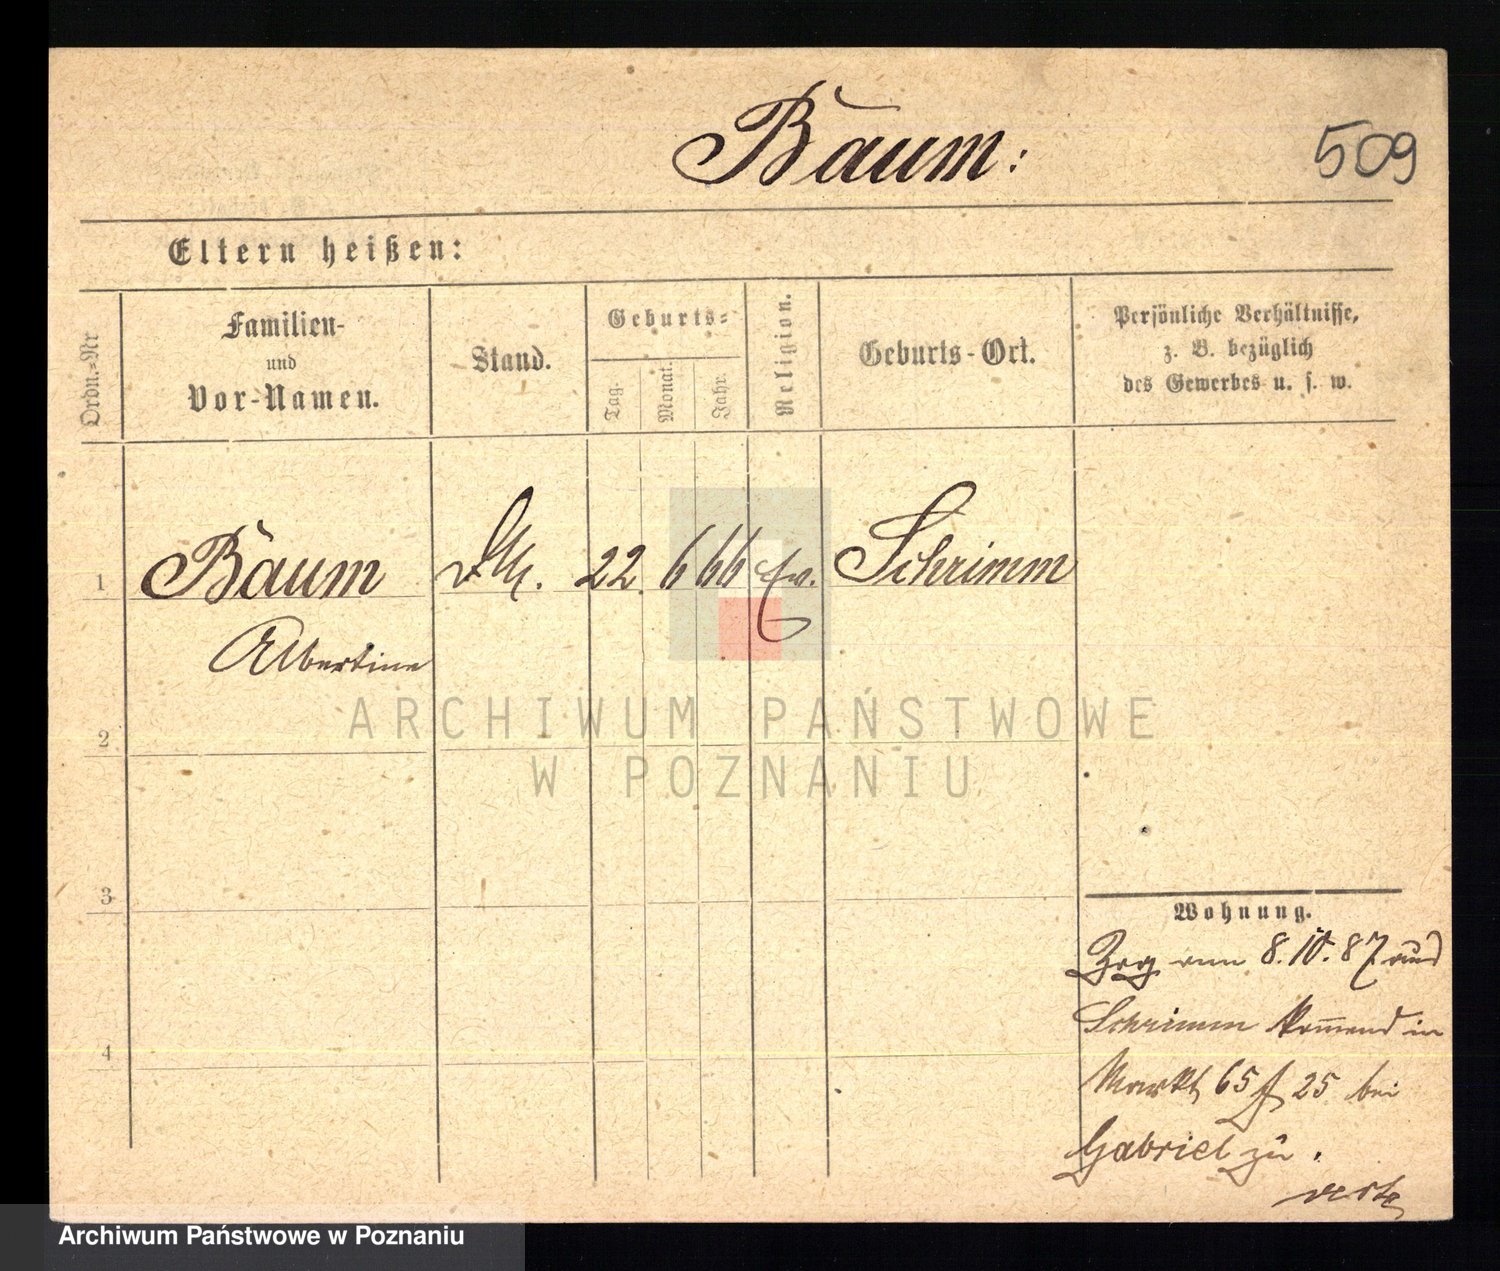 Baum:
509
Eltern heißen:
Ordn.-Nr
Familien-
und
Vor-Namen.
Stand.
Geburts-
Tag.
Monat.
Jahr.
Religion.
Geburts-Ort.
Persönliche Verhältnisse,
z. B. bezüglich
des Gewerbes u. s. w.
1 Baum 22. 6 66 Ev. Schrimm
Albertine
ARCHIWUM PAŃSTWOWE
W POZNANIU
2
3
4
Wohnung.
Zzg 8.10.87 aus
Schrimm kom̅end in
Markt 65 25 bei
Gabriel zu.
Archiwum Państwowe w Poznaniu